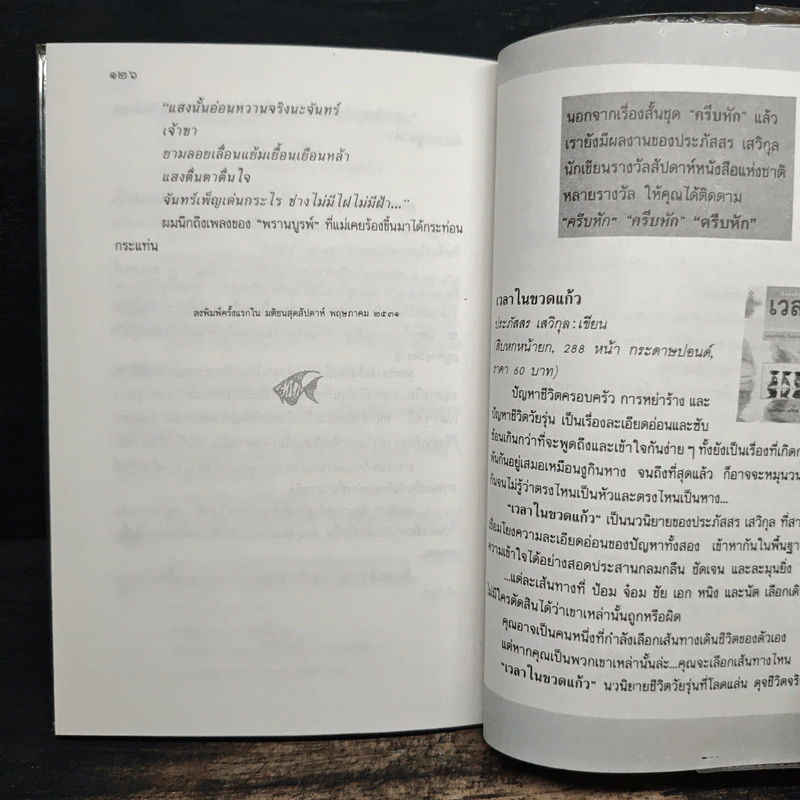 ๑๒๖
"แสงนั้นอ่อนหวานจริงนะจันทร์
เจ้าขา
ยามลอยเลื่อนแย้มเยื้อนเยือนหล้า
แสงตื่นตาตื่นใจ
จันทร์เพ็ญเด่นกระไร ช่างไม่มีไฝไม่มีฝ้า..."
ผมนึกถึงเพลงของ "พรานบูรพ์" ที่แม่เคยร้องขึ้นมาได้กระท่อน
กระแท่น
ลงพิมพ์ครั้งแรกใน มติชนสุดสัปดาห์ พฤษภาคม ๒๕๓๑
นอกจากเรื่องสั้นชุด "ครีบหัก" แล้ว
เรายังมีผลงานของประภัสสร เสวิกุล
นักเขียนรางวัลสัปดาห์หนังสือแห่งชาติ
หลายรางวัล ให้คุณได้ติดตาม
"ครีบหัก" "ครีบหัก" "ครีบหัก"
เวลาในขวดแก้ว
ประภัสสร เสวิกุล : เขียน
(สิบหกหน้ายก, 288 หน้า กระดาษปอนด์,
ราคา 60 บาท)
ปัญหาชีวิตครอบครัว การหย่าร้าง และ
ปัญหาชีวิตวัยรุ่น เป็นเรื่องละเอียดอ่อนและซับ
ซ้อนเกินกว่าที่จะพูดถึงและเข้าใจกันง่าย ๆ ทั้งยังเป็นเรื่องที่เกิด
พันกันอยู่เสมอเหมือนงูกินหาง จนถึงที่สุดแล้ว ก็อาจจะหมุนวน
กันจนไม่รู้ว่าตรงไหนเป็นหัวและตรงไหนเป็นหาง...
"เวลาในขวดแก้ว" เป็นนวนิยายของประภัสสร เสวิกุล ที่
เชื่อมโยงความละเอียดอ่อนของปัญหาทั้งสอง เข้าหากันในพื้นฐา
ความเข้าใจได้อย่างสอดประสานกลมกลืน ชัดเจน และละมุนยิ่ง
...แต่ละเส้นทางที่ ป้อม จ๋อม ชัย เอก หนิง และนัต เลือกเดิ
ไม่มีใครตัดสินได้ว่าเขาเหล่านั้นถูกหรือผิด
คุณอาจเป็นคนหนึ่งที่กำลังเลือกเส้นทางเดินชีวิตของตัวเอง
แต่หากคุณเป็นพวกเขาเหล่านั้นล่ะ...คุณจะเลือกเส้นทางไหน
"เวลาในขวดแก้ว" นวนิยายชีวิตวัยรุ่นที่โลดแล่น ดุจชีวิตจริ